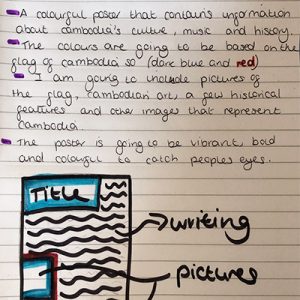 A colourful poster that contains information
about cambodia's culture, music and history.
The colours are going to be based on the
flag of cambodia so (dark blue and red)
I am going to include pictures of
the flag, cambodian art, a few historical
features and other images that represent
cambodia
The poster is going to be vibrant, bold
and colourful to catch peoples eyes.
Title
writing
pictures